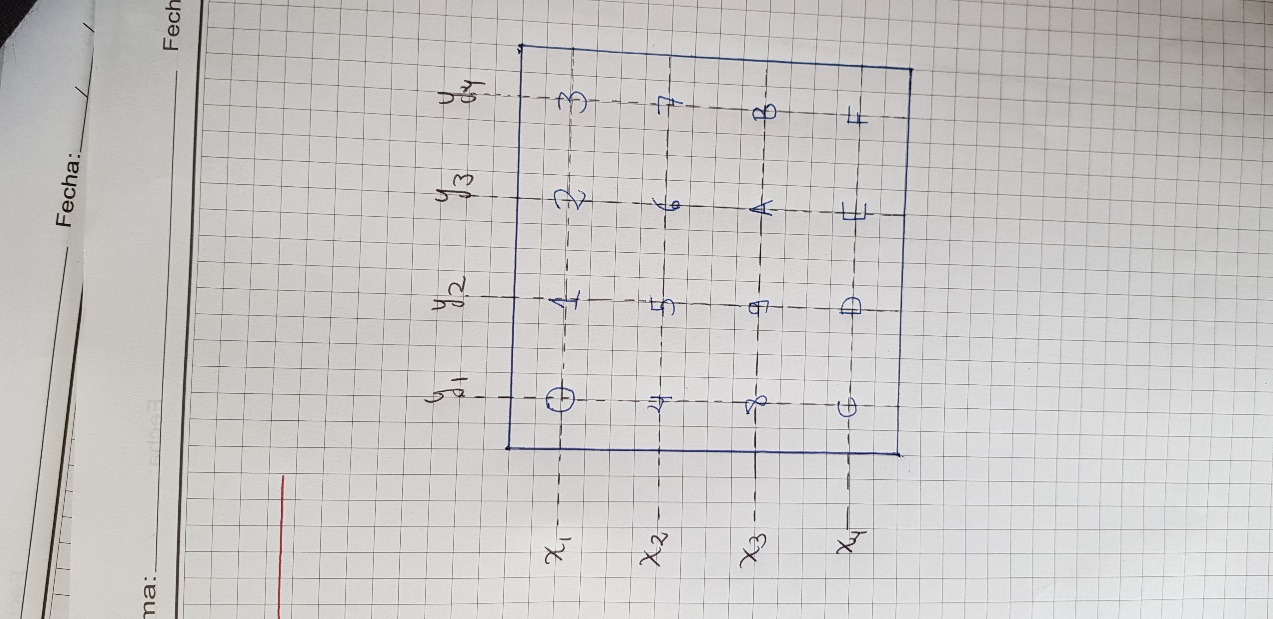 Fecha:
ma: Fech
y1 y2 y3 y4
x1 0 1 2 3
x2 4 5 6 7
x3 8 9 A B
x4 C D E F